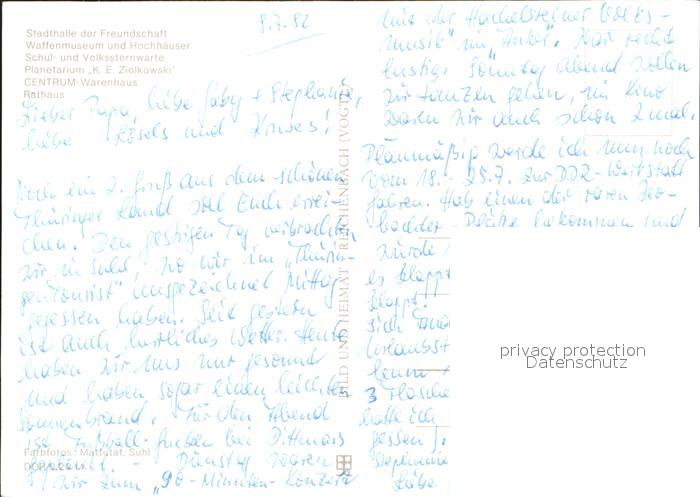 Stadthalle der Freundschaft
Waffenmuseum und Hochhäuser
Schul- und Volkssternwarte
Planetarium „K. E. Ziolkowski"
CENTRUM-Warenhaus
Rathaus
8.7.82
Lieber Papa, liebe Gaby + Stephanie,
liebe Kösels und Kruses!
Noch ein 2. Gruß aus dem schönen
Thüringer Land soll Euch errei-
chen. Den gestrigen Tag verbrachten
wir in Suhl, wo wir im „Thürin-
gentourist" ausgezeichnet Mittag
gegessen haben. Seit gestern
ist auch herrliches Wetter. Heute
haben wir uns nur gesonnt
und haben sogar einen leichten
Sonnenbrand. Für den Abend
ist Fußball-gucken bei Dittmars
geplant. - Dienstag waren
wir zum „90-Minuten-Konzert
Farbfotos: Mattutat, Suhl
BILD UND HEIMAT REICHENBACH (VOGTL)
mit der Hachelsteiner Volks-
musik" in War recht
lustig. Sonntag Abend wollen
wir tanzen gehen, im Kino
waren wir auch schon 2 mal.
Planmäßig werde ich nun noch
vom 18. - 25.7. zur DDR-
fahren. Hab einen der raren Beo-
bachter-Plätze bekommen und
würde
es klappt
klappt.
sich
Urlaubst
lenn
3 Flasche
hatte ich
gessen
Stephanie
Liebe
privacy protection
Datenschutz